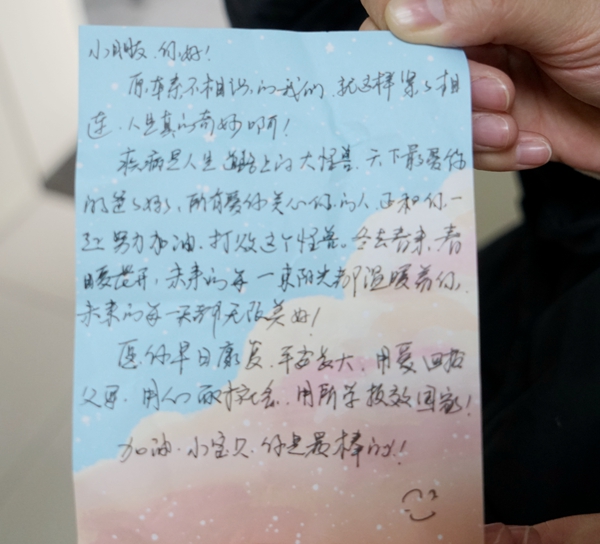 小朋友，你好！
原本素不相识的我们，就这样紧紧相
连，人生真的奇妙啊！
疾病是人生道路上的大怪兽，天下最爱你
的爸妈，所有爱你关心你的人，正和你一
起努力加油，打败这个怪兽。冬去春来，春
暖花开，未来的每一束阳光都温暖着你，
未来的每一天都无限美好！
愿你早日康复，平安长大，用爱回报
父母，用 社会，用所学报效国家！
加油，小宝贝，你是最棒的！